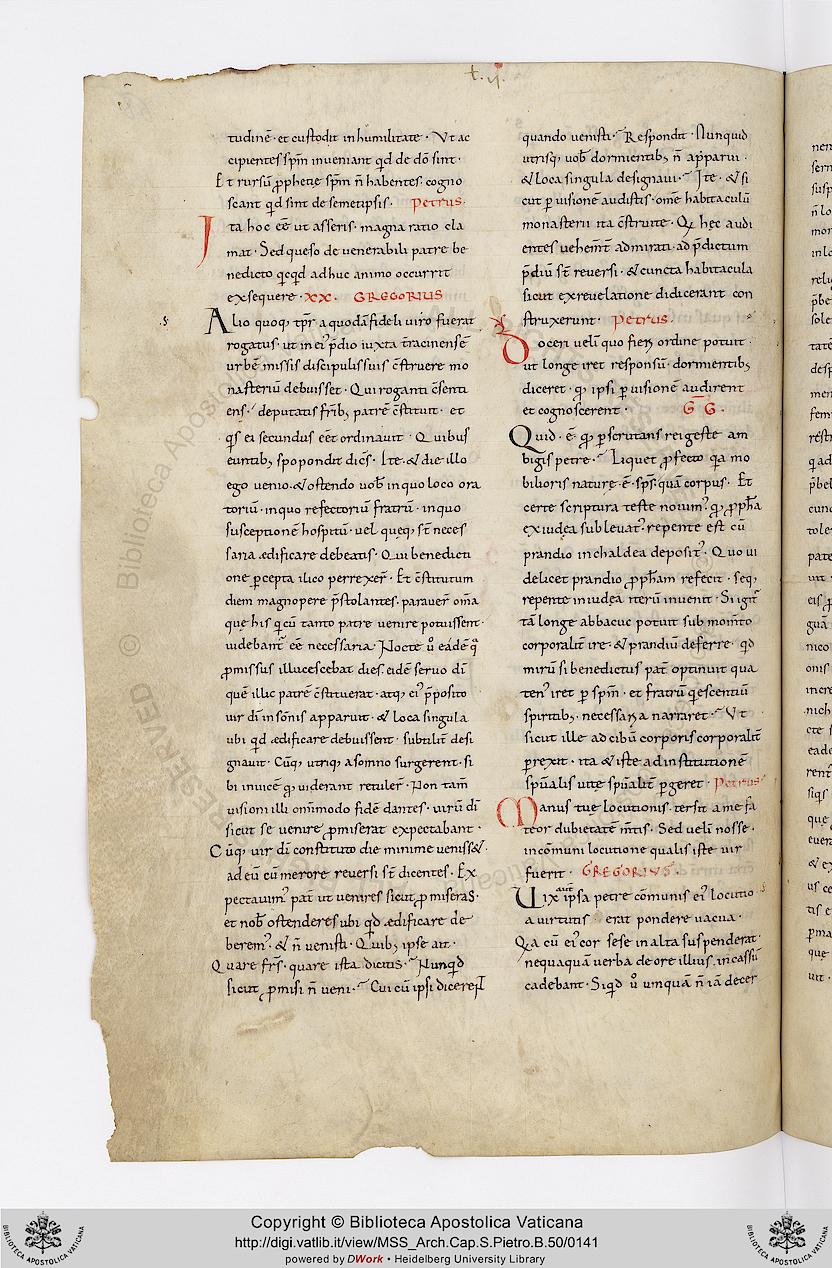 t. ii.
tudinē · et custodit in humilitate · Vt ac
cipientes spm̄ inveniant qd̄ de dō sint ·
Et rursū ꝓphetie spm̄ n̄ habentes cogno
scant qd̄ sint de semetipsis · Petrus ·
Ita hoc eē ut asseris · magna ratio cla
mat · Sed queso de venerabili patre be
nedicto qcqd adhuc animo occurrit
exsequere · XX · GREGORIUS
Alio quoq; tp̄r a quodā fideli viro fuerat
rogatus · ut in ei' p̄dio iuxta tracinensē
urbē missis discipulis suis c̄struere mo
nasteriū debuisset · Qui roganti c̄senti
ens · deputatis fr̄ib; patrē c̄stituit · et
qs ei secundus eēt ordinavit · Quibus
euntib; spopondit dicēs · Ite · & die illo
ego venio · & ostendo vob̄ in quo loco ora
toriū · in quo refectoriū fratrū · in quo
susceptionē hospitū · vel queq; st̄ neces
saria ædificare debeatis · Qui benedicti
one ꝑcepta ilico perrexer̄ · Et c̄stitutum
diem magnopere p̄stolantes · paraver̄ om̄a
que his q cū tanto patre venire potuissent ·
videbant̄ eē necessaria · Nocte ů eadē q
ꝓmissus illucescebat dies · eidē servo dī
quē illic patrē c̄stituerat · atq; ei' p̄posito
vir dī in sōnis apparuit · & loca singula
ubi qd̄ ædificare debuissent · subtilit̄ desi
gnavit · Cūq; utriq; a somno surgerent · si
bi invicē q viderant retuler̄ · Non tam̄
visioni illi om̄imodo fidē dantes · virū dī
sicut se venire ꝓmiserat expectabant ·
Cūq; vir dī constituto die minime veniss&
ad eū cū merore reversi st̄ dicentes · Ex
pectavim' pat̄ ut venires sicut ꝓmiseras ·
et nob̄ ostenderes ubi qd̄ ædificare de
berem' · & n̄ venisti · Quib; ipse ait ·
Quare fr̄s · quare ista dicitis · Nunqd
sicut ꝓmisi n̄ veni · Cui cū ipsi dicerent
quando venisti · Respondit · Nunquid
utrisq; vob̄ dormientib; n̄ apparui ·
& loca singula designavi · Ite · & si
cut ꝑ visionē audistis · omē habitaculū
monasterii ita c̄struite · Qi hec audi
entes vehem̄t admirati · ad p̄dictum
p̄diū st̄ reversi · & cuncta habitacula
sicut ex revelatione didicerant con
struxerunt · Petrus ·
Doceri velī quo fieri ordine potuit ·
ut longe iret responsū · dormientib;
diceret · q ipsi ꝑ visionē audirent
et cognoscerent · GG ·
Quid · ē · q ꝑscrutans rei geste am
bigis petre · Liquet ꝓfecto qa mo
bilioris nature · ē · sps̄ · quā corpus · Et
certe scriptura teste novim' · q ꝓph̄a
ex iudea sublevat' repente est cū
prandio in chaldea deposit' · Quo vi
delicet prandio ꝓph̄am refecit · seq;
repente in iudea iterū invenit · Si igit̄
tā longe abbacuc potuit sub mom̄to
corporalit̄ ire · & prandiū deferre · qd̄
mirū si benedictus pat̄ optinuit qua
ten' iret ꝑ spm̄ · et fratrū qescentiū
spiritib; necessaria narraret · Vt
sicut ille ad cibū corporis corporalit̄
ꝑrexit · ita & iste ad institutionē
spūalis vite spūalit̄ ꝑgeret · Petrus
Manus tuę locutionis · tersit a me fa
teor dubietatē m̄tis · Sed velī nosse ·
in cōmuni locutione qualis iste vir
fuerit · GREGORIVS ·
Uix aut ipsa petre cōmunis ei' locutio
a virtutis erat pondere vacua ·
Qa cū ei' cor sese in alta suspenderat ·
nequaquā verba de ore illius in cassū
cadebant · Siqd ů unquā n̄ iā decer
Copyright © Biblioteca Apostolica Vaticana
http://digi.vatlib.it/view/MSS_Arch.Cap.S.Pietro.B.50/0141
powered by DWork • Heidelberg University Library